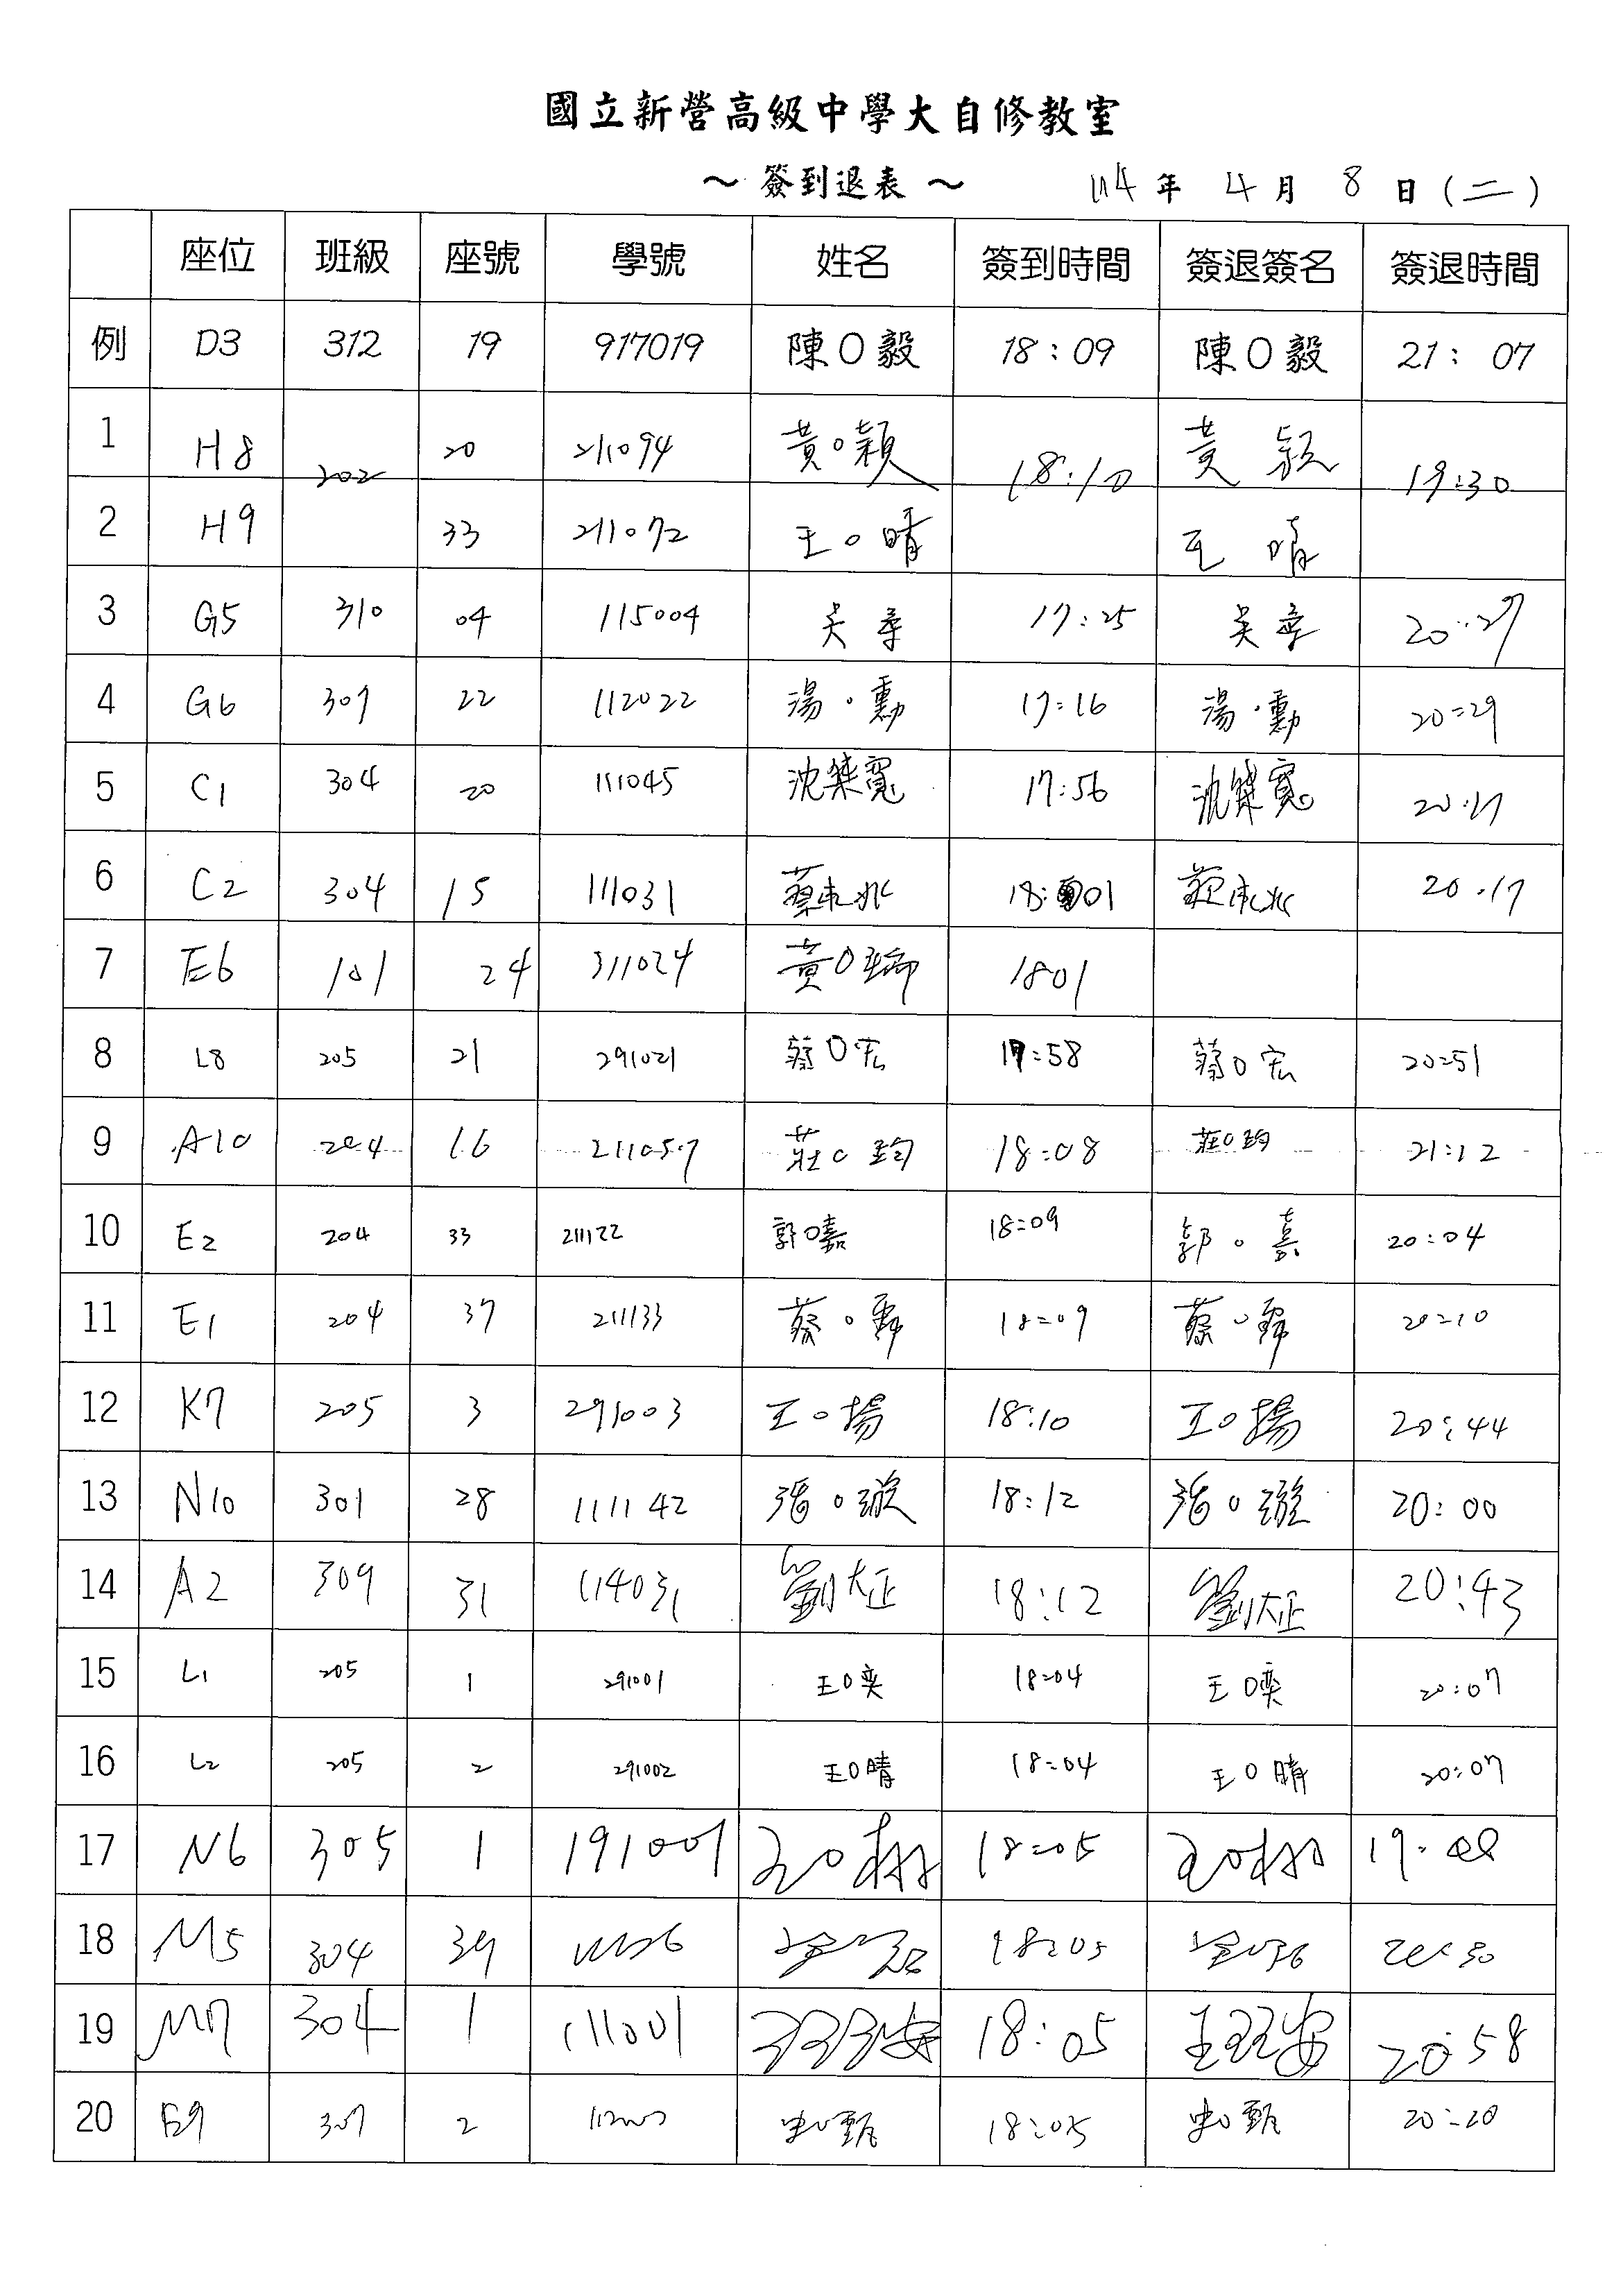 國立新營高級中學大自修教室
～ 簽到退表 ～ 114 年 4 月 8 日 (二)
座位 班級 座號 學號 姓名 簽到時間 簽退簽名 簽退時間
例 D3 312 19 917019 陳O毅 18:09 陳O毅 21:07
1 H8 202 20 211094 黃O穎 18:10 黃 穎 19:30
2 H9 33 211072 王O晴 王 晴
3 G5 310 04 115004 吳 17:25 吳 20:27
4 G6 307 22 112022 湯·勳 17:16 湯·勳 20:29
5 C1 304 20 111045 沈 寬 17:56 沈 寬 20:17
6 C2 304 15 111031 蔡 18:01 20:17
7 E6 101 24 311024 黃O 1801
8 L8 205 21 291021 蔡O宏 17:58 蔡O宏 20:51
9 A10 204 16 211057 莊O鈞 18:08 莊O鈞 21:12
10 E2 204 33 211122 郭O嘉 18:09 郭O嘉 20:04
11 E1 204 37 211133 蔡O霖 18:09 蔡O霖 20:10
12 K7 205 3 291003 王O揚 18:10 王O揚 20:44
13 N10 301 28 111142 O璇 18:12 O璇 20:00
14 A2 309 31 114031 劉大正 18:12 劉大正 20:43
15 L1 205 1 291001 王O奕 18:04 王O奕 20:07
16 L2 205 2 291002 王O晴 18:04 王O晴 20:07
17 N6 305 1 191001 18:05 19:
18 M5 304 39 18:05
19 M7 304 1 111001 18:05 王 安 20:58
20 E9 307 2 O甄 18:05 O甄 20:20